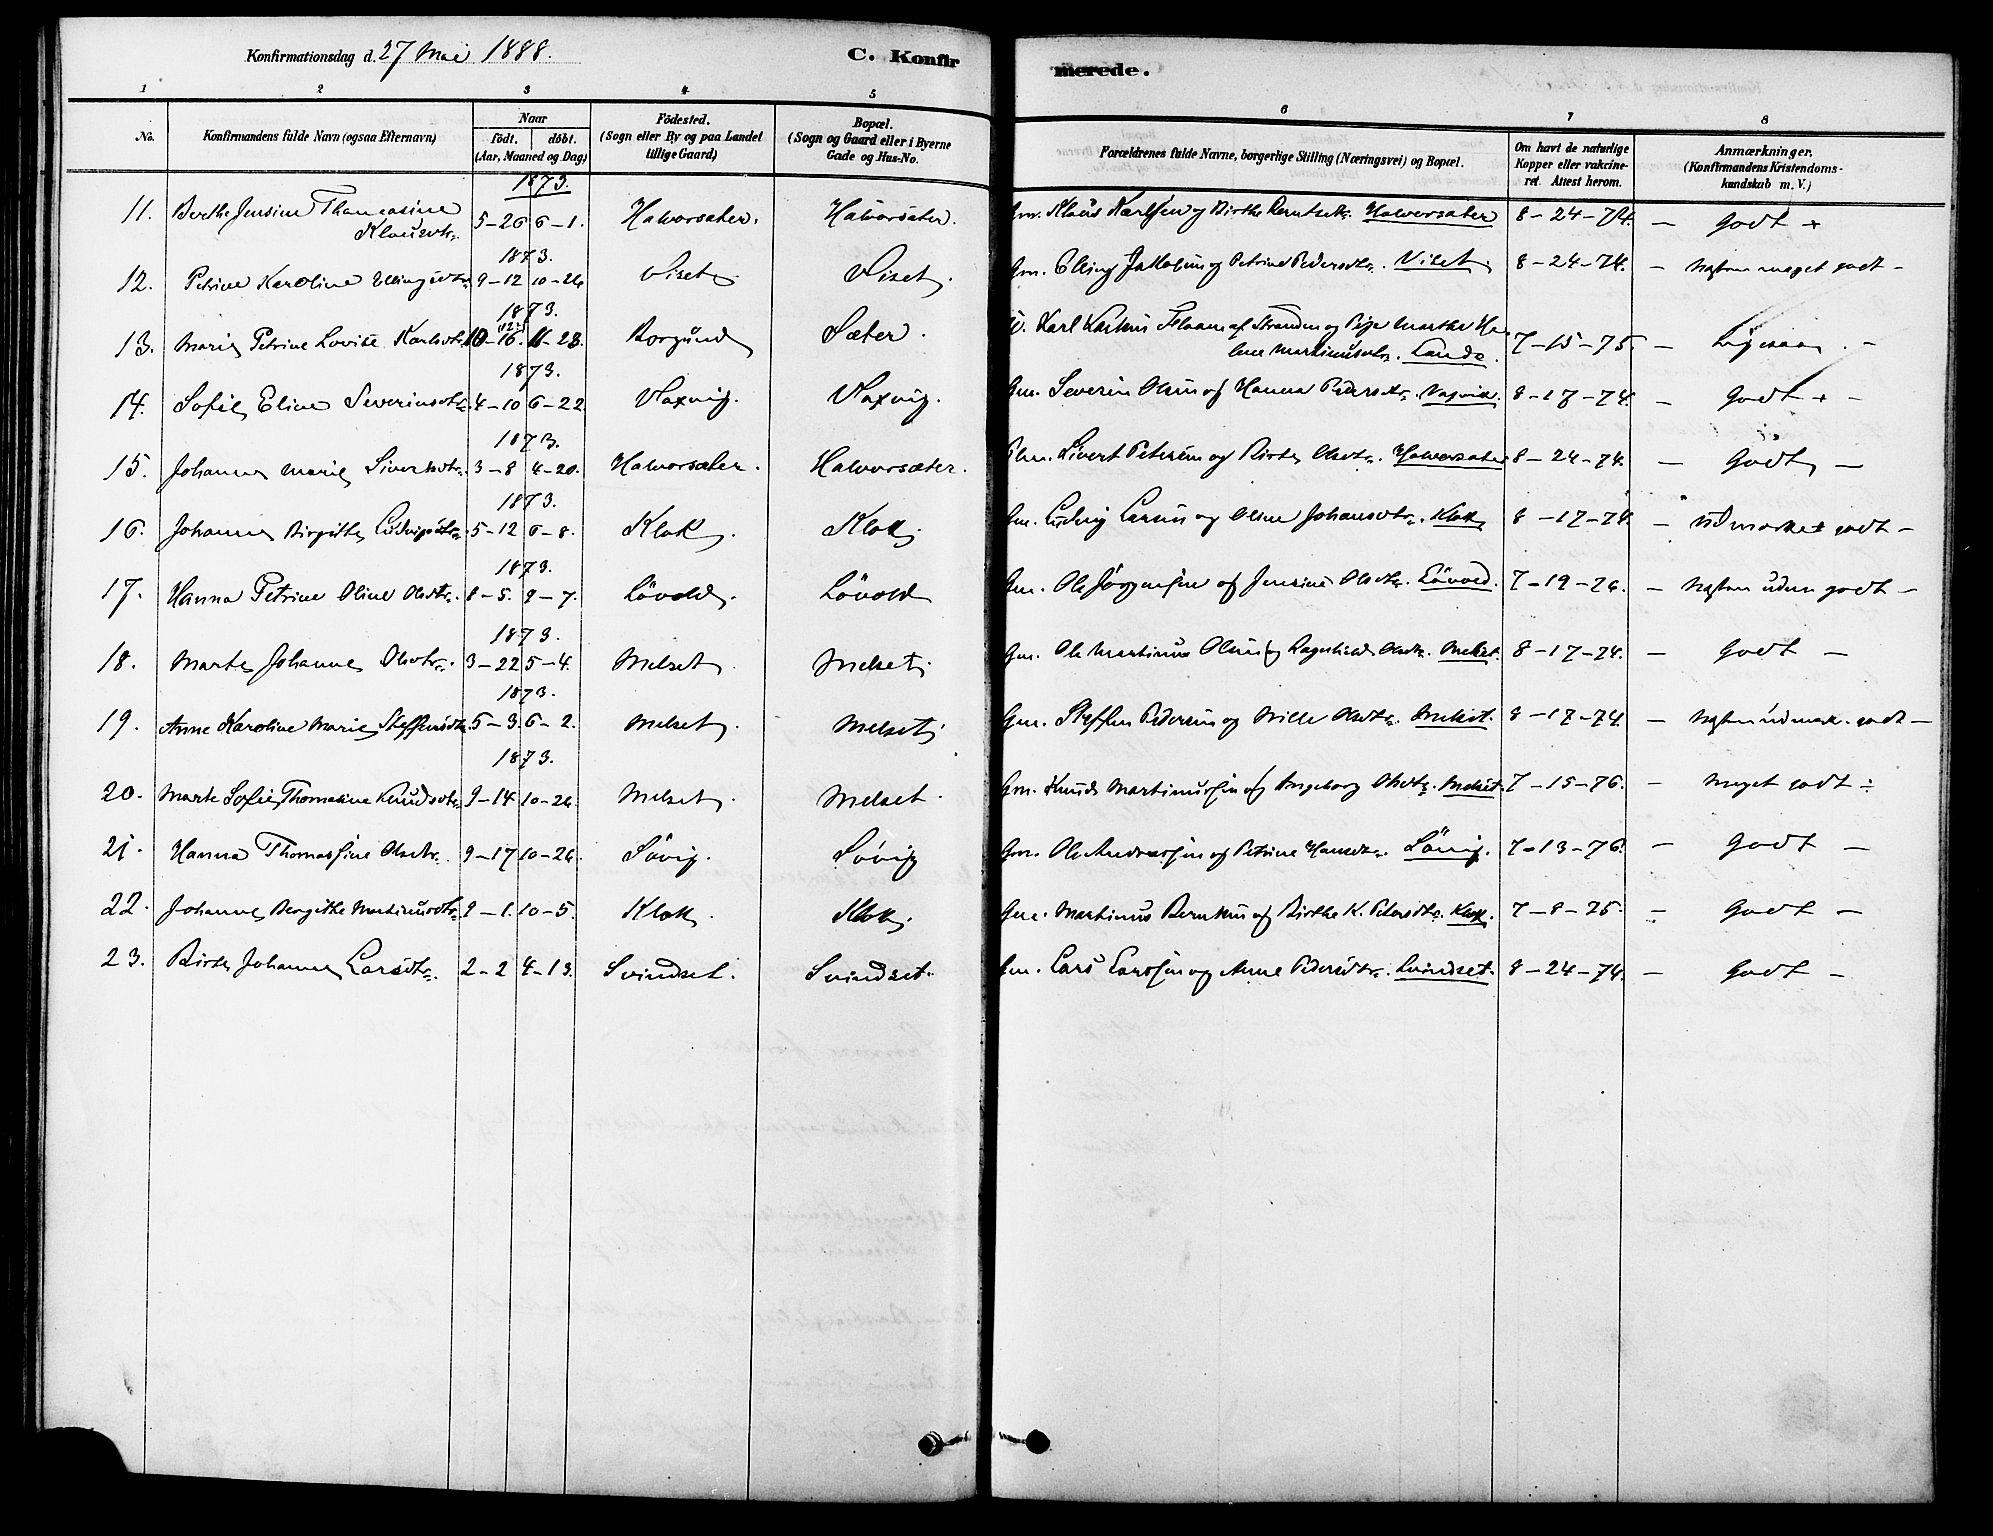 Konfirmationsdag d. 27 Mai 1888.
C. Konfirmerede.
1 2 3 4 5 6 7 8
No. Konfirmandens fulde Navn (ogsaa Efternavn) Naar födt. döbt. (Aar, Maaned og Dag) Födested. (Sogn eller By og paa Landet tillige Gaard) Bopæl. (Sogn og Gaard eller i Byerne Gade og Hus-No. Forældrenes fulde Navne, borgerlige Stilling (Næringsvei) og Bopæl. Om havt de naturlige Kopper eller vakcineret. Attest herom. Anmærkninger. (Konfirmandens Kristendomskundskab m. V.)
1873.
11. Berthe Jensine Thomasine Klausdtr. 5-26 6-1. Halvorsæter. Halvorsæter. Gm. Klaus Karlsen og Birthe Berntsdtr. Halvorsæter 8-24-74. - Godt +
1873.
12. Petrine Karoline Ellingsdtr. 9-12 10-26 Viset. Viset. Gm. Elling Jakobsen og Petrine Pedersdtr. Viset. 8-24-74. - Næsten meget godt -
1873.
13. Marie Petrine Lovise Karlsdtr. 10-16. 11-23. Borgund Sæter. Karl Flaam af Stranden og Pige Marthe Helene Martinusdtr. Sande. 7-15-75. - Ligesaa. -
1873.
14. Sofie Eline Severinsdtr. 4-10 6-22. Vaxvig. Vaxvig. Gm. Severin Olsen og Hanna Pedersdtr. Vaxvik. 8-17-74. - Godt + -
1873.
15. Johanne Marie Sivertsdtr. 3-8 4-20. Halvorsæter. Halvorsæter. Sivert Petersen og Birte Olsdtr. Halvorsæter 8-24-74. - Godt -
1873.
16. Johanne Birgitte Ludvigsdtr. 5-12 6-8. Klok. Klok. Gm. Ludvig Larsen og Oline Johansdtr. Klok 8-17-74. - Udmærket godt -
1873.
17. Hanna Petrine Oline Olsdtr. 8-5. 9-7. Lövold. Lövold Gm. Ole Jörgensen og Jensine Olsdtr. Lövold. 7-19-76. - Næsten udm. godt -
1873.
18. Marte Johanne Olsdtr. 3-22 5-4. Melset. Melset. Gm. Ole Martinus Olsen og Ragnhild Olsdtr. Melset. 8-17-74. - Godt -
1873.
19. Anne Karoline Marie Steffensdtr. 5-3. 6-2. Melset. Melset. Gm. Steffen Pedersen og Olsdtr. Melset. 8-17-74. - Næsten udmærk. godt -
1873.
20. Marte Sofie Thomasine Knudsdtr. 9-14 10-26. Melset. Melset. Gm. Knud Martinussen og Ingeborg Olsdtr. Melset. 7-15-76. - Meget godt ÷
21. Hanna Thomassine Olsdtr. 9-17 10-26. Sövig. Sövig Gm. Ole Andreassen og Petrine Hansdtr. Sövig. 7-13-76. - Godt -
22. Johanne Bergithe Martinusdtr. 9-1. 10-5. Klok. Klok. Gm. Martinus Berntsen og Birthe K. Petersdtr. Klok. 7-8-75. - Godt -
23. Birte Johanne Larsdtr. 2-2 4-13. Svindset. Svindset. Gm. Lars Larssen og Anne Pedersdtr. Svindset. 8-24-74. - Godt -